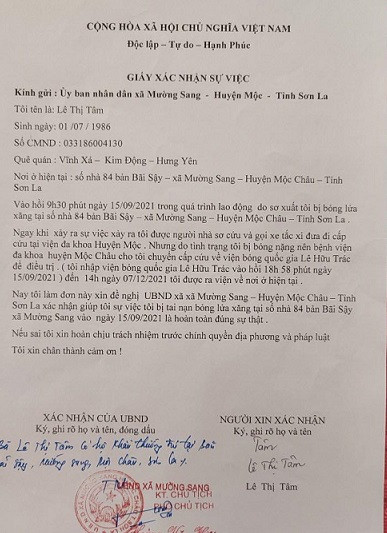 CỘNG HÒA XÃ HỘI CHỦ NGHĨA VIỆT NAM
Độc lập – Tự do – Hạnh Phúc
GIẤY XÁC NHẬN SỰ VIỆC
Kính gửi : Ủy ban nhân dân xã Mường Sang - Huyện Mộc - Tỉnh Sơn La
Tôi tên là: Lê Thị Tâm
Sinh ngày: 01 /07 / 1986
Số CMND : 033186004130
Quê quán : Vĩnh Xá – Kim Động – Hưng Yên
Nơi ở hiện tại : số nhà 84 bản Bãi Sậy – xã Mường Sang – Huyện Mộc Châu – Tỉnh
Sơn La
Vào hồi 9h30 phút ngày 15/09/2021 trong quá trình lao động do sơ xuất tôi bị bỏng lửa
xăng tại số nhà 84 bản Bãi Sậy – xã Mường Sang – Huyện Mộc Châu – Tỉnh Sơn La .
Ngay khi xảy ra sự việc xảy ra tôi được người nhà sơ cứu và gọi xe tắc xi đưa đi cấp
cứu tại viện đa khoa Huyện Mộc . Nhưng do tình trạng tôi bị bỏng nặng nên bệnh viện
đa khoa huyện Mộc Châu cho tôi chuyển cấp cứu về viện bỏng quốc gia Lê Hữu Trác
để điều trị . ( tôi nhập viện bỏng quốc gia Lê Hữu Trác vào hồi 18h 58 phút ngày
15/09/2021 ) đến 14h ngày 07/12/2021 tôi được ra viện về nơi ở hiện tại .
Nay tôi làm đơn này xin đề nghị UBND xã xã Mường Sang – Huyện Mộc Châu – Tỉnh
Sơn La xác nhận giúp tôi sự việc tôi bị tai nạn bỏng lửa xăng tại số nhà 84 bản Bãi Sậy
xã Mường Sang vào ngày 15/09/2021 là hoàn toàn đúng sự thật .
Nếu sai tôi xin hoàn chịu trách nhiệm trước chính quyền địa phương và pháp luật
Tôi xin chân thành cảm ơn !
XÁC NHẬN CỦA UBND
Ký, ghi rõ họ và tên, đóng dấu
NGƯỜI XIN XÁC NHẬN
Ký, ghi rõ họ và tên
Bà Lê Thị Tâm có hộ khẩu thường trú tại
Sậy, Mường Sang, Mộc Châu, Sơn La.
Tâm
Lê Thị Tâm
Lê Thị Tâm
UBND XÃ MƯỜNG SANG
KT. CHỦ TỊCH
PHÓ CHỦ TỊCH